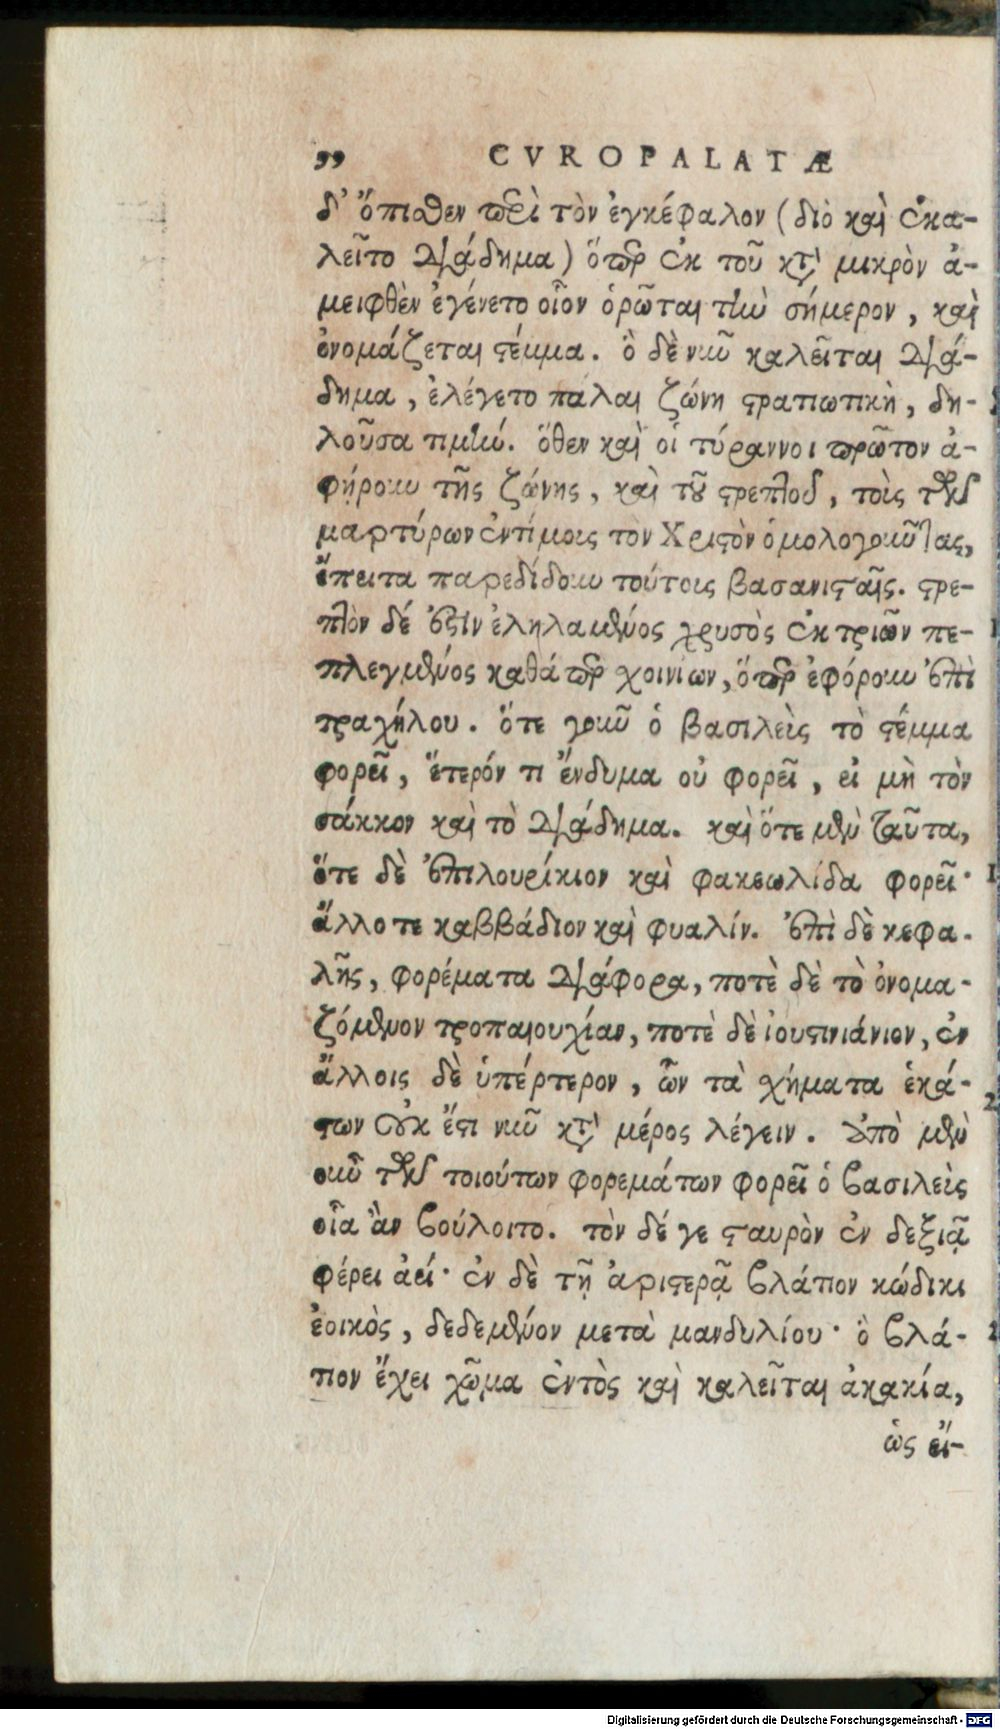 „ CVROPALATÆ
δ' ὄπισθεν περὶ τὸν ἐγκέφαλον (διὸ καὶ ἐκα-
λεῖτο διάδημα) ὅπερ ἐκ τοῦ κατὰ μικρὸν ἀ-
μειφθὲν ἐγένετο οἷον ὁρᾶται τὴν σήμερον, καὶ
ὀνομάζεται στέμμα. ὃ δὲ νῦν καλεῖται διά-
δημα, ἐλέγετο πάλαι ζώνη στρατιωτικὴ, δη-
λοῦσα τιμήν. ὅθεν καὶ οἱ τύραννοι πρῶτον ἀ-
φῄρουν τῆς ζώνης, καὶ τοῦ στρεπτοῦ, τοὺς τῶν
μαρτύρων ἐντίμους τὸν Χριστὸν ὁμολογοῦντας,
ἔπειτα παρεδίδουν τούτους βασανισταῖς. στρε-
πτὸν δέ ἐστιν ἐληλαμένος χρυσὸς ἐκ τριῶν πε-
πλεγμένος καθάπερ σχοινίων, ὅπερ ἐφόρουν ἐπὶ
τραχήλου. ὅτε γοῦν ὁ βασιλεὺς τὸ στέμμα
φορεῖ, ἕτερόν τι ἔνδυμα οὐ φορεῖ, εἰ μὴ τὸν
σάκκον καὶ τὸ διάδημα. καὶ ὅτε μὲν ταῦτα,
ὅτε δὲ ἐπιλουρίκιον καὶ φακεωλίδα φορεῖ·
ἄλλοτε καββάδιον καὶ φυαλίν. ἐπὶ δὲ κεφα-
λῆς, φορέματα διάφορα, ποτὲ δὲ τὸ ὀνομα-
ζόμενον τροπαιουχίαν, ποτὲ δὲ ἰουστινιάνιον, ἐν
ἄλλοις δὲ ὑπέρτερον, ὧν τὰ σχήματα ἑκά-
στων οὐκ ἔστι νῦν κατὰ μέρος λέγειν. ἀπὸ μὲν
οὖν τῶν τοιούτων φορεμάτων φορεῖ ὁ βασιλεὺς
οἷα ἂν βούλοιτο. τὸν δέ γε σταυρὸν ἐν δεξιᾷ
φέρει ἀεί· ἐν δὲ τῇ ἀριστερᾷ βλάτιον κώδικι
ἐοικὸς, δεδεμένον μετὰ μανδυλίου· ὃ βλά-
τιον ἔχει χῶμα ἐντὸς καὶ καλεῖται ἀκακία,
ὡς εἴ-
Digitalisierung gefördert durch die Deutsche Forschungsgemeinschaft - DFG